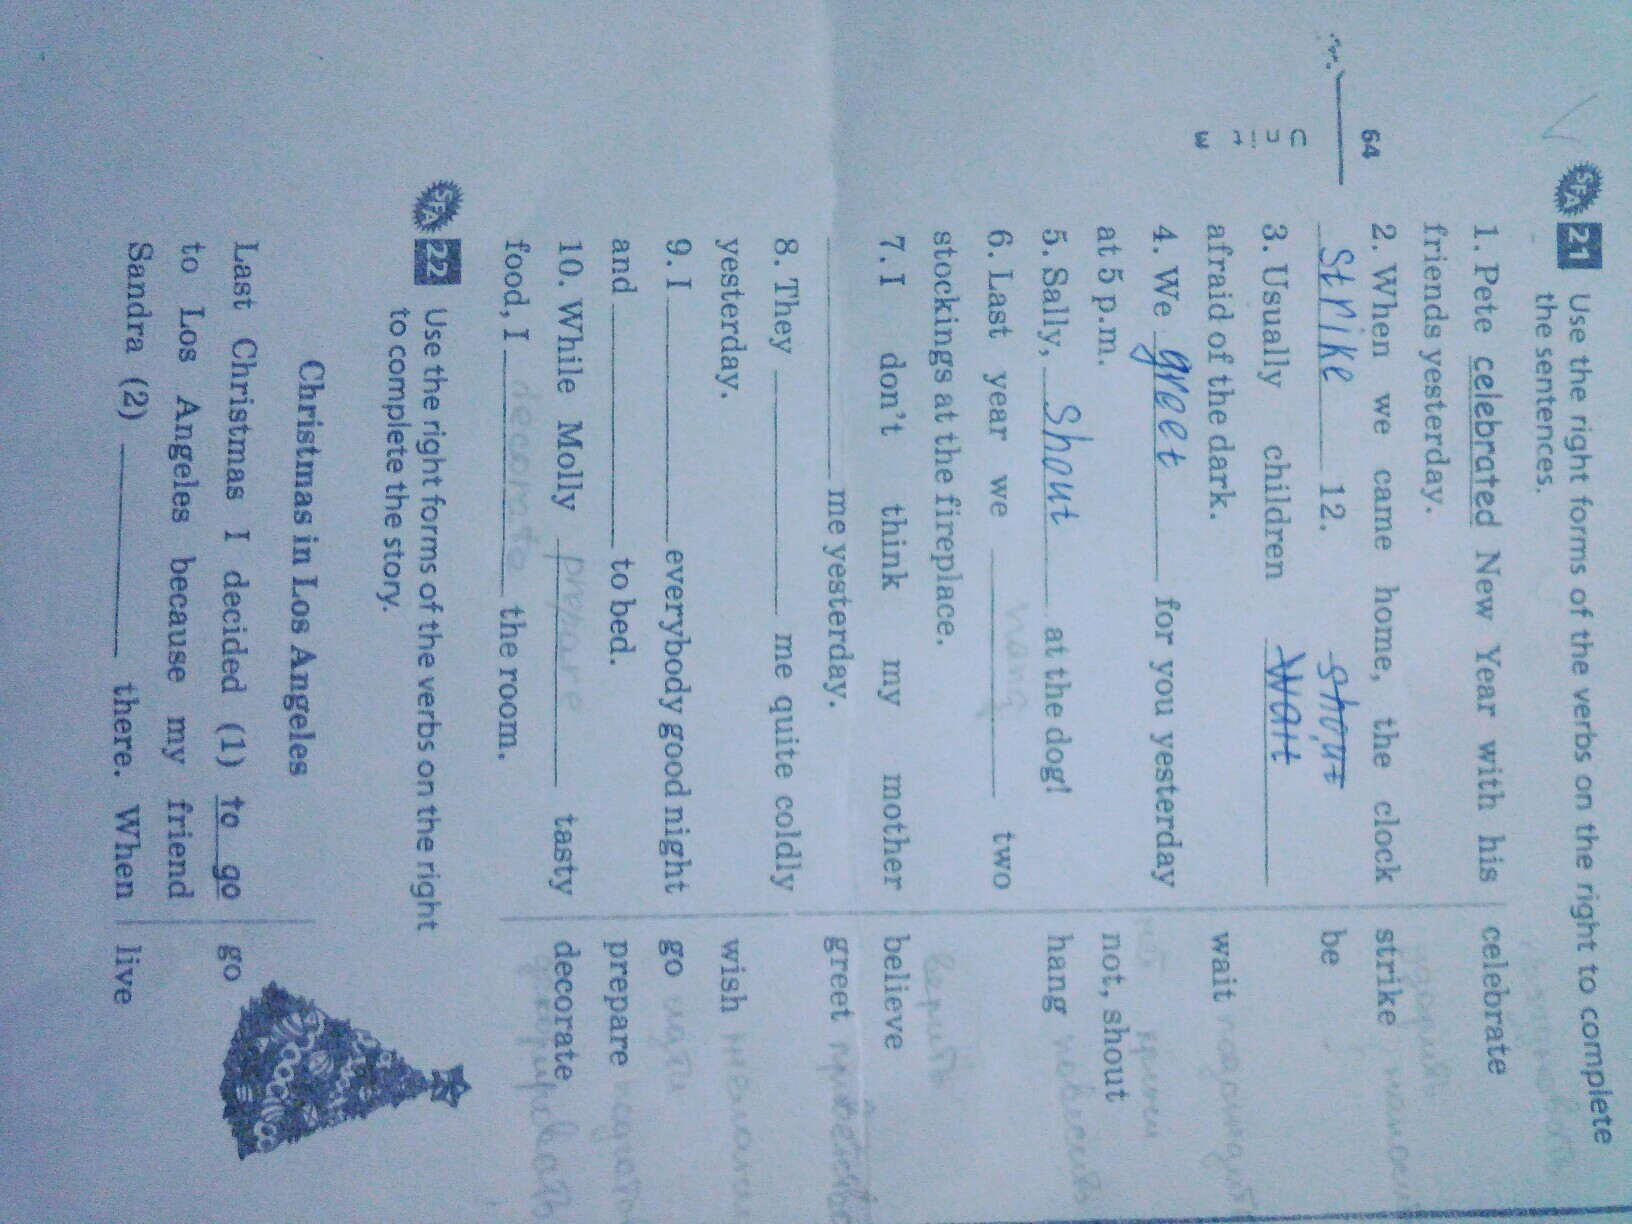 SFA 21 Use the right forms of the verbs on the right to complete
the sentences.
1. Pete celebrated New Year with his
friends yesterday.
celebrate
64
2. When we came home, the clock
strike 12.
strike
shout
3. Usually children wait
afraid of the dark.
be
4. We greet for you yesterday
at 5 p.m.
wait
5. Sally, Shout at the dog!
not, shout
6. Last year we hang two
stockings at the fireplace.
hang повесить
7. I don't think my mother
me yesterday.
believe
верить
8. They me quite coldly
yesterday.
greet
9. I everybody good night
and to bed.
wish
go идти
10. While Molly prepare tasty
food, I decorate the room.
prepare
decorate
SFA 22 Use the right forms of the verbs on the right
to complete the story.
Christmas in Los Angeles
Last Christmas I decided (1) to go
to Los Angeles because my friend
go
Sandra (2) there. When
live